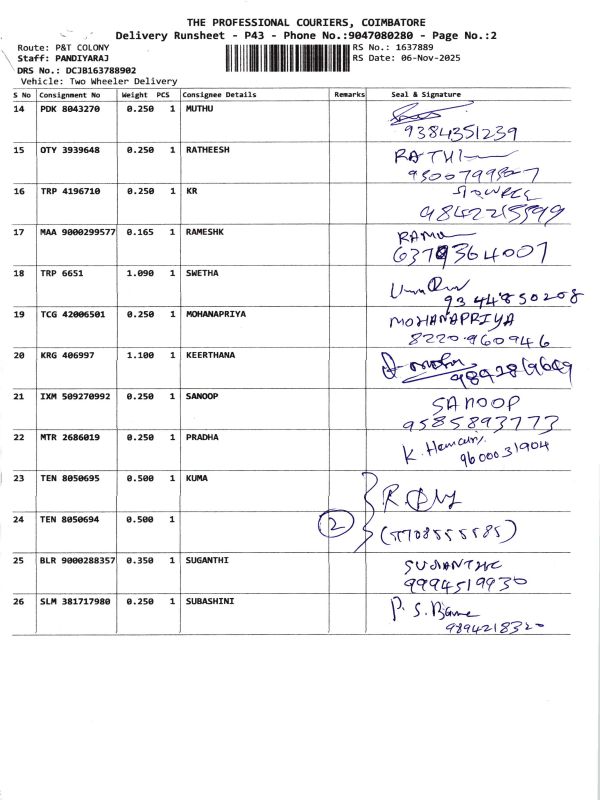 THE PROFESSIONAL COURIERS, COIMBATORE
Delivery Runsheet - P43 - Phone No.:9047080280 - Page No.:2
Route: P&T COLONY
RS No.: 1637889
Staff: PANDIYARAJ
RS Date: 06-Nov-2025
DRS No.: DCJB163788902
Vehicle: Two Wheeler Delivery
S No Consignment No Weight PCS Consignee Details Remarks Seal & Signature
14 PDK 8043270 0.250 1 MUTHU
9384351239
15 OTY 3939648 0.250 1 RATHEESH
16 TRP 4196710 0.250 1 KR
17 MAA 9000299577 0.165 1 RAMESHK
6379364007
18 TRP 6651 1.090 1 SWETHA
9344850208
19 TCG 42006501 0.250 1 MOHANAPRIYA MOHANAPRIYA
8220960946
20 KRG 406997 1.100 1 KEERTHANA
21 IXM 509270992 0.250 1 SANOOP SANOOP
9585893773
22 MTR 2686019 0.250 1 PRADHA
9600031904
23 TEN 8050695 0.500 1 KUMA
24 TEN 8050694 0.500 1 2
25 BLR 9000288357 0.350 1 SUGANTHI
9994519930
26 SLM 381717980 0.250 1 SUBASHINI
9894218320